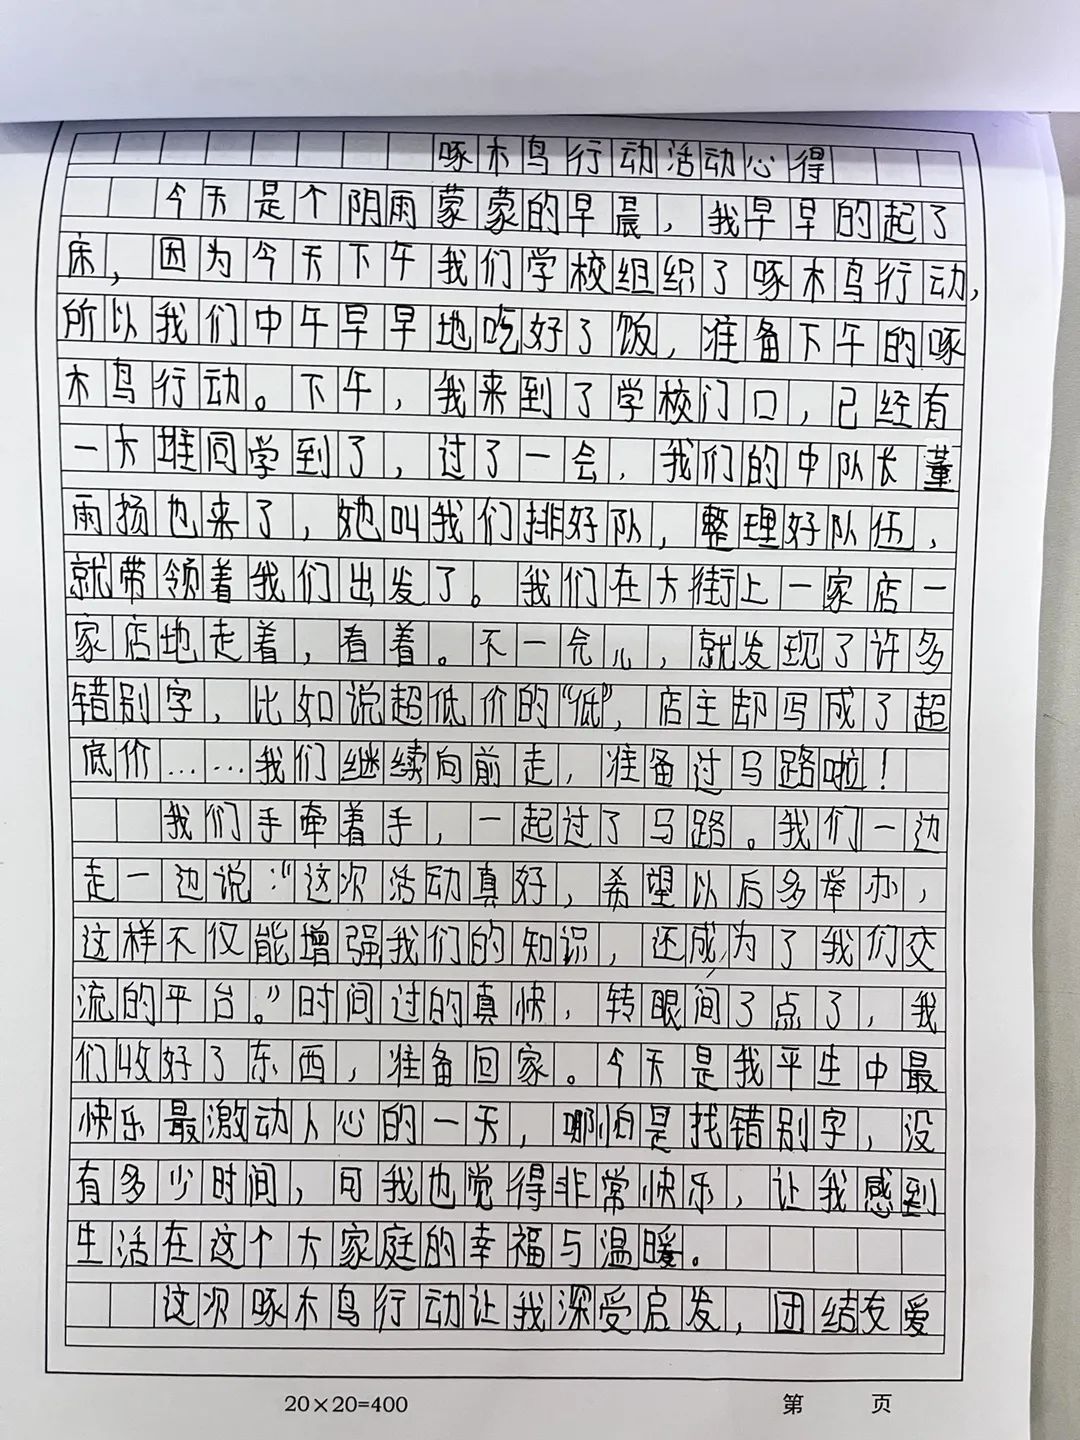 啄木鸟行动活动心得
今天是个阴雨蒙蒙的早晨，我早早的起了
床，因为今天下午我们学校组织了啄木鸟行动，
所以我们中午早早地吃好了饭，准备下午的啄
木鸟行动。下午，我来到了学校门口，已经有
一大堆同学到了，过了一会，我们的中队长董
雨扬也来了，她叫我们排好队，整理好队伍，
就带领着我们出发了。我们在大街上一家店一
家店地走着，看着。不一会儿，就发现了许多
错别字，比如说超低价的“低”，店主却写成了超
底价……我们继续向前走，准备过马路啦！
我们手牵着手，一起过了马路。我们一边
走一边说：“这次活动真好，希望以后多举办，
这样不仅能增强我们的知识，还成为了我们交
流的平台。”时间过的真快，转眼间3点了，我
们收好了东西，准备回家。今天是我平生中最
快乐最激动人心的一天，哪怕是找错别字，没
有多少时间，可我也觉得非常快乐，让我感到
生活在这个大家庭的幸福与温暖。
这次啄木鸟行动让我深受启发，团结友爱
20×20=400
第 页